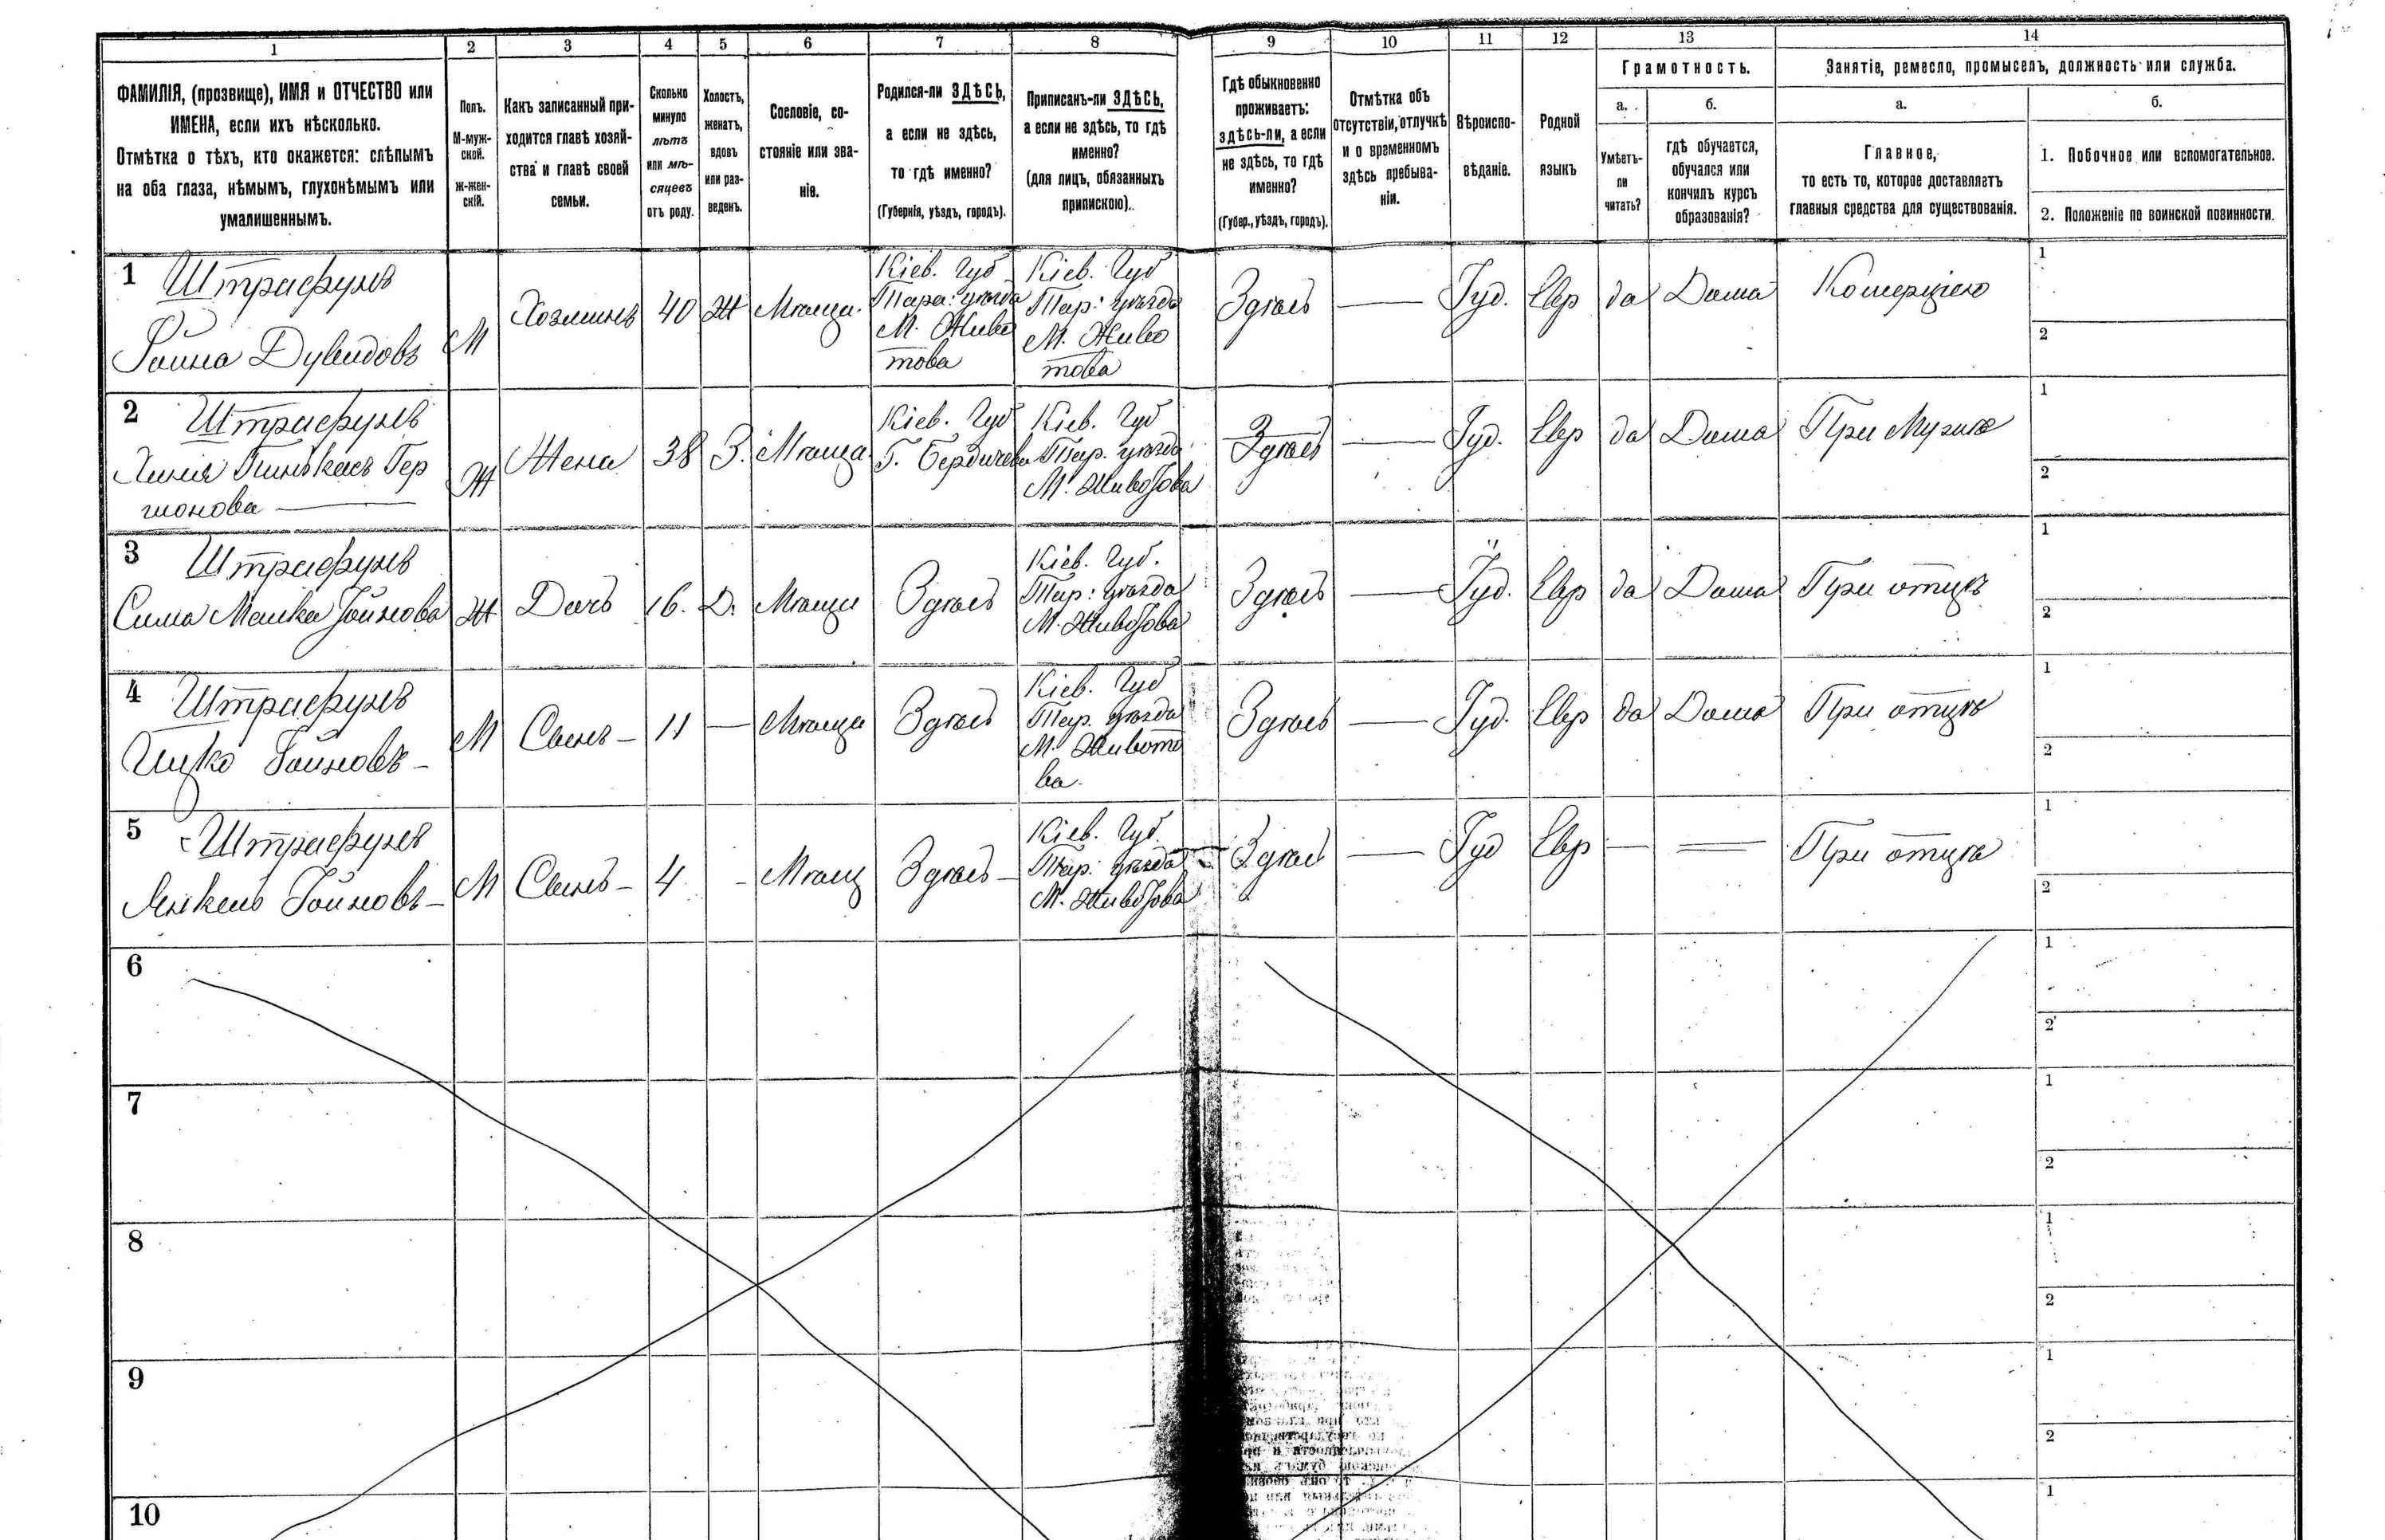 1 2 3 4 5 6 7 8 9 10 11 12 13 14
ФАМИЛІЯ, (прозвище), ИМЯ и ОТЧЕСТВО или
ИМЕНА, если ихъ нѣсколько.
Отмѣтка о тѣхъ, кто окажется: слѣпымъ
на оба глаза, нѣмымъ, глухонѣмымъ или
умалишеннымъ.
Полъ.
М-муж-
ской.
ж-жен-
скій.
Какъ записанный при-
ходится главѣ хозяй-
ства и главѣ своей
семьи.
Сколько
минуло
лѣтъ
или мѣ-
сяцевъ
отъ роду.
Холостъ,
женатъ,
вдовъ
или раз-
веденъ.
Сословіе, со-
стояніе или зва-
ніе.
Родился-ли ЗДѢСЬ,
а если не здѣсь,
то гдѣ именно?
(Губернія, уѣздъ, городъ).
Приписанъ-ли ЗДѢСЬ,
а если не здѣсь, то гдѣ
именно?
(для лицъ, обязанныхъ
припискою).
Гдѣ обыкновенно
проживаетъ:
здѣсь-ли, а если
не здѣсь, то гдѣ
именно?
(Губер., уѣздъ, городъ).
Отмѣтка объ
отсутствіи, отлучкѣ
и о временномъ
здѣсь пребыва-
ніи.
Вѣроиспо-
вѣданіе.
Родной
языкъ
Грамотность.
а.
Умѣетъ-
ли
читать?
б.
гдѣ обучается,
обучался или
кончилъ курсъ
образованія?
Занятіе, ремесло, промыселъ, должность или служба.
а.
Главное,
то есть то, которое доставляетъ
главныя средства для существованія.
б.
1. Побочное или вспомогательное.
2. Положеніе по воинской повинности.
1 Штрафунъ
Іойна Дувидовъ
М
Хозяинъ
40
Ж
Мѣща.
Кіев. Губ
Тара: уѣзда
М. Живо
това
Кіев. Губ
Тар: уѣзда
М. Живо
това
Здѣсь
—
Іуд.
Евр
да
Дома
Комерціею
1
2
2 Штрафунъ
Гер
шонова —
Ж
Жена
38
З.
Мѣща
Кіев. Губ
Г. Бердичева
Кіев. Губ
Тар. уѣзда
М. Животова
Здѣсь
—
Іуд.
Евр
да
Дома
При Мужѣ
1
2
3 Штрафунъ
Сима Малка Іойнова
Ж
Дочь
16.
Д.
Мѣща
Здѣсь
Кіев. Губ.
Тар: уѣзда
М. Животова
Здѣсь
—
Іуд.
Евр
да
Дома
При отцѣ
1
2
4 Штрафунъ
Ицко Іойновъ —
М
Сынъ —
11
—
Мѣща
Здѣсь
Кіев. Губ
Тар. уѣзда
М. Живото
ва.
Здѣсь
—
Іуд.
Евр
да
Дома
При отцѣ
1
2
5 Штрафунъ
Янкель Іойновъ —
М
Сынъ —
4
-
Мѣщ
Здѣсь —
Кіев. Губ.
Тар: уѣзда
М. Животова
Здѣсь
—
Іуд
Евр
—
=
При отцѣ
1
2
6
1
2
7
1
2
8
1
2
9
1
2
10
1